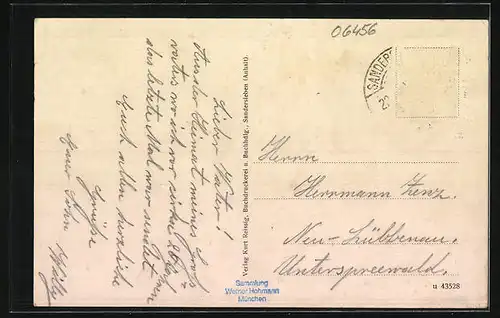 06456
SANDER
Lieber Vater!
Aus der Heimat meines Groß-
vaters, wo ich vor
das letzte Mal war sendet
Euch allen herzliche
Grüße
Euer Sohn Willy
Verlag Kurt Reissig, Buchdruckerei u. Buchhdlg., Sandersleben (Anhalt).
Herrn
Herrmann Zenz.
Neu-Lübbenau.
Unterspreewald.
Sammlung
Werner Hohmann
München
u 43528